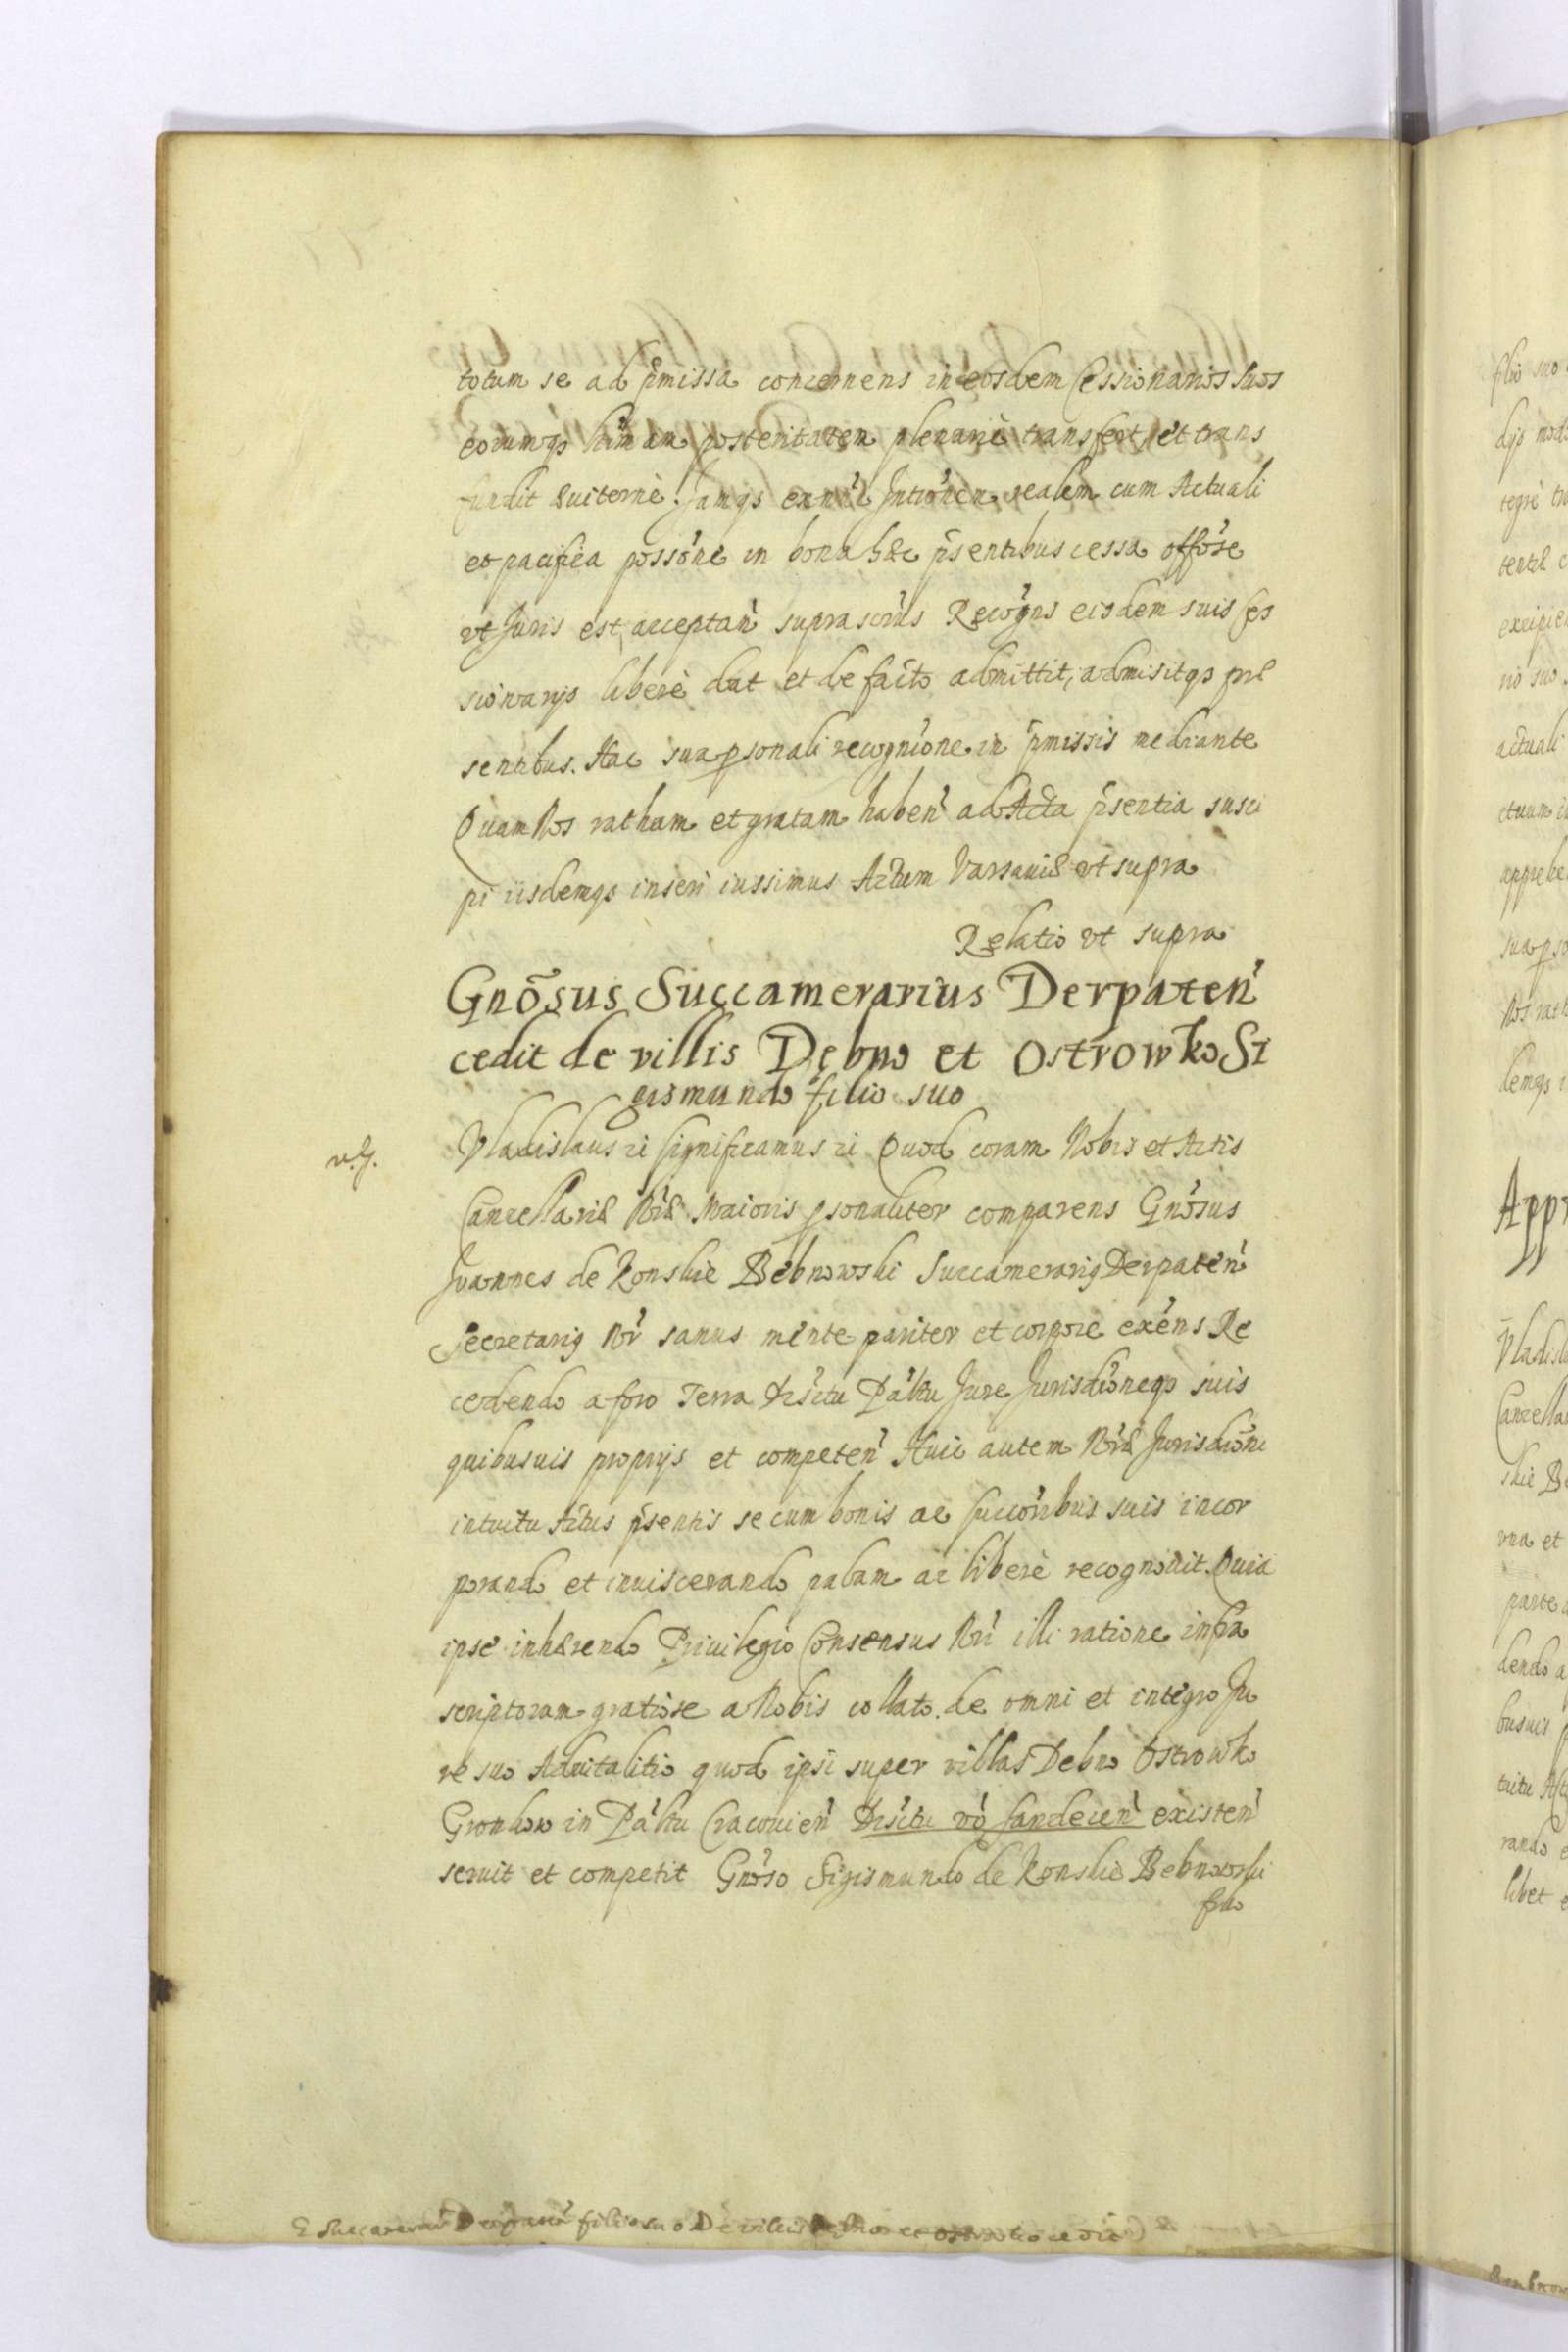 totum se ad p̃missa concernens in eosdem Cessionarios suos
eorumqs posteritatem plenariè transfert, et trans
fundit Jamqs realem cum Actuali
et pacifica possõne in bona hæc p̃sentibus cessa
vt Juris est, acceptan̄ suprascriptus Recogns eisdem suis Ces
sionarijs liberè dat et de facto admittit, admisitqs præ
sentibus. Hac sua psonali recognitione in p̃missis mediante
Quam Nos ratham et gratam haben̄ ad Acta p̃sentia susci
pi iisdemqs inseri iussimus Actum Varsauiæ vt supra
Relatio vt supra
Gnõsus Succamerarius Derpaten̄
cedit de villis Debno et Ostrowko Si
gismundo filio suo
Vladislaus zc significamus zc Quod coram Nobis et Actis
Cancellariæ Nr̃æ Maioris psonaliter comparens Gnõsus
Joannes de Konskie Bębnowski Succamerarig Derpaten̄
Secretarig Nr̃ sanus mente pariter et corpore exẽns Re
cedendo a foro Terra Districtu Pãltu Jure Jurisdiõneqs suis
quibusuis proprijs et competen̄ Huic autem Nr̃æ Jurisdiõni
intuitu Actus p̃sentis se cum bonis ac succõribus suis incor
porando et inuiscerando palam ac liberè recognouit. Quia
ipse inhærendo Priuilegio Consensus Nr̃i illi ratione infra
scriptorum gratiose a Nobis collato. de omni et integro Ju
re suo Aduitalitio quod ipsi super villas Debno Ostrowko
in Pãltu Cracouien̄ Districtu vo Sandecen̄ existen̄
seruit et competit Gnõso Sigismundo de Konskie Bebnowski
filio
Succamerari Derpaten̄ filio suo De villis Debno et Ostrowko cedit